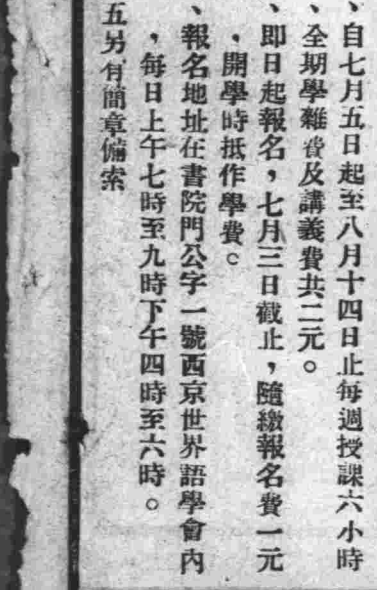 、自七月五日起至八月十四日止每週授課六小時
、全期學雜費及講義費共二元。
、即日起報名，七月三日截止，隨繳報名費一元
，開學時抵作學費。
、報名地址在書院門公字一號西京世界語學會內
，每日上午七時至九時下午四時至六時。
五另有簡章備索